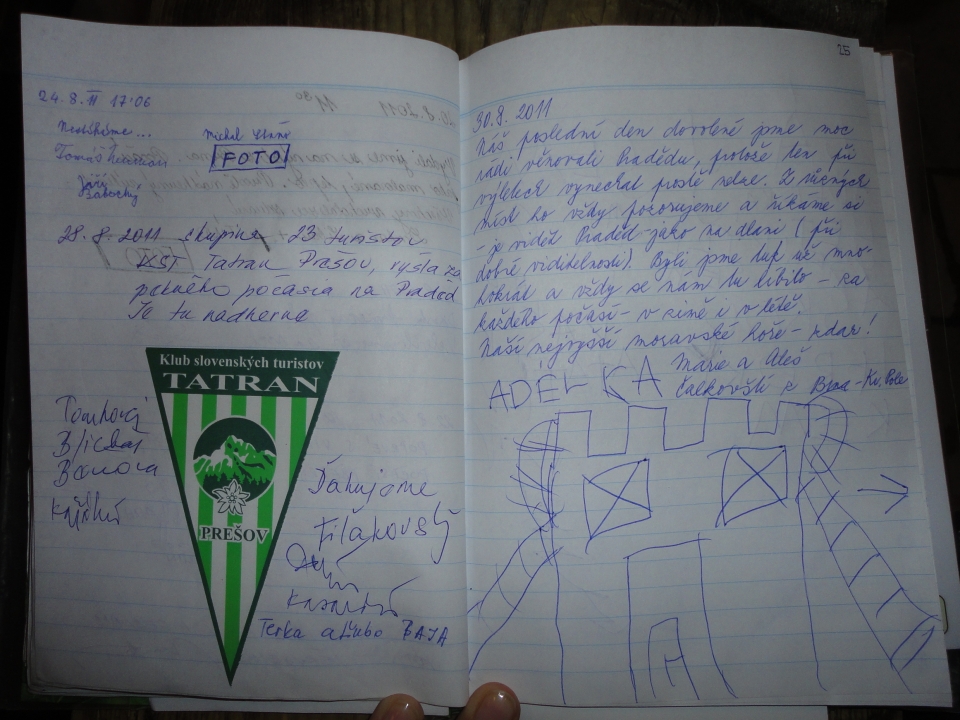 24. 8. 11 17:06
Nestíháme...
Tomáš
Jiří
Michal
FOTO
28. 8. 2011 skupina 23 turistov
KST Tatran Prešov, vyšla za
pekného počasia na Praděd
Je tu nadherne
Klub slovenských turistov
TATRAN
PREŠOV
Ďakujeme
Fiľakovský
Terka a Ľubo BAJA
25
30. 8. 2011
Náš poslední den dovolené jsme moc
rádi věnovali Pradědu, protože ten při
výletech vynechat prostě nelze. Z různých
míst ho vždy pozorujeme a říkáme si
- je vidět Praděd jako na dlani (při
dobré viditelnosti). Byli jsme tu už mno-
hokrát a vždy se nám tu líbilo - za
každého počasí - v zimě i v létě.
Naší nejvyšší moravské hoře - zdar!
Marie a Aleš
z Brna - Kr. Pole
ADÉLKA